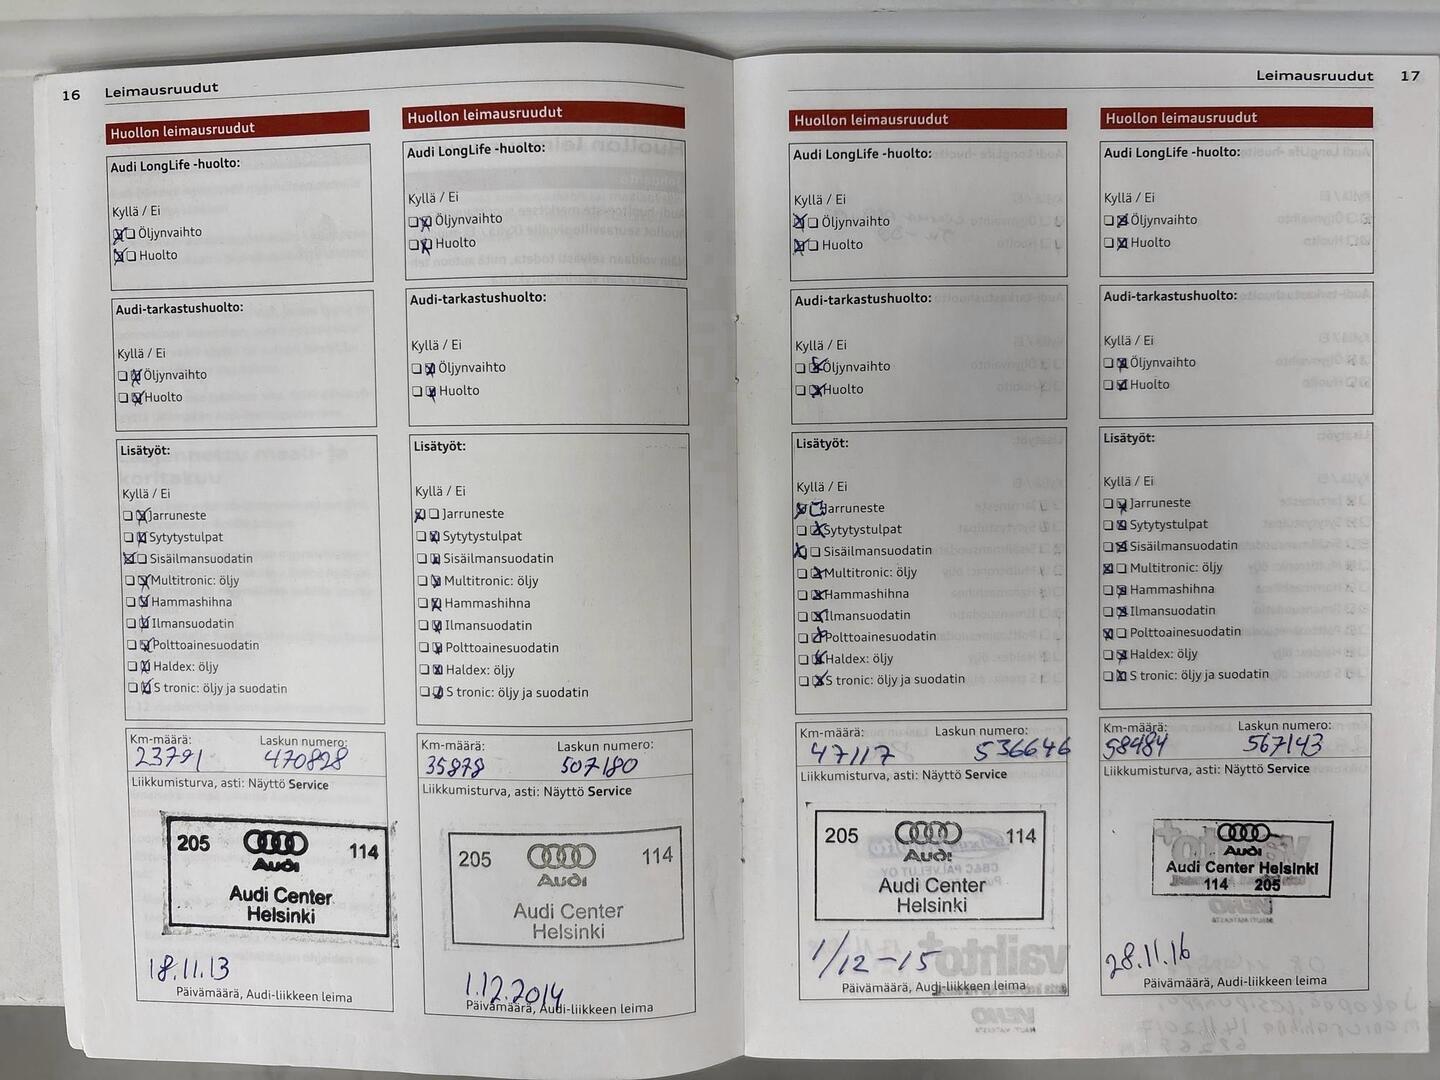 16 Leimausruudut
Huollon leimausruudut
Audi LongLife -huolto:
Kyllä / Ei
Öljynvaihto
Huolto
Audi-tarkastushuolto:
Kyllä / Ei
Öljynvaihto
Huolto
Lisätyöt:
Kyllä / Ei
Jarruneste
Sytytystulpat
Sisäilmansuodatin
Multitronic: öljy
Hammashihna
Ilmansuodatin
Polttoainesuodatin
Haldex: öljy
S tronic: öljy ja suodatin
Km-määrä: Laskun numero:
23791 470828
Liikkumisturva, asti: Näyttö Service
205 114
Audi
Audi Center
Helsinki
18.11.13
Päivämäärä, Audi-liikkeen leima
Huollon leimausruudut
Audi LongLife -huolto:
Kyllä / Ei
Öljynvaihto
Huolto
Audi-tarkastushuolto:
Kyllä / Ei
Öljynvaihto
Huolto
Lisätyöt:
Kyllä / Ei
Jarruneste
Sytytystulpat
Sisäilmansuodatin
Multitronic: öljy
Hammashihna
Ilmansuodatin
Polttoainesuodatin
Haldex: öljy
S tronic: öljy ja suodatin
Km-määrä: Laskun numero:
35878 507180
Liikkumisturva, asti: Näyttö Service
205 114
Audi
Audi Center
Helsinki
1.12.2014
Päivämäärä, Audi-liikkeen leima
Leimausruudut 17
Huollon leimausruudut
Audi LongLife -huolto:
Kyllä / Ei
Öljynvaihto
Huolto
Audi-tarkastushuolto:
Kyllä / Ei
Öljynvaihto
Huolto
Lisätyöt:
Kyllä / Ei
Jarruneste
Sytytystulpat
Sisäilmansuodatin
Multitronic: öljy
Hammashihna
Ilmansuodatin
Polttoainesuodatin
Haldex: öljy
S tronic: öljy ja suodatin
Km-määrä: Laskun numero:
47117 536646
Liikkumisturva, asti: Näyttö Service
205 114
Audi
Audi Center
Helsinki
1/12-15
Päivämäärä, Audi-liikkeen leima
Huollon leimausruudut
Audi LongLife -huolto:
Kyllä / Ei
Öljynvaihto
Huolto
Audi-tarkastushuolto:
Kyllä / Ei
Öljynvaihto
Huolto
Lisätyöt:
Kyllä / Ei
Jarruneste
Sytytystulpat
Sisäilmansuodatin
Multitronic: öljy
Hammashihna
Ilmansuodatin
Polttoainesuodatin
Haldex: öljy
S tronic: öljy ja suodatin
Km-määrä: Laskun numero:
58484 567143
Liikkumisturva, asti: Näyttö Service
Audi
Audi Center Helsinki
114 205
28.11.16
Päivämäärä, Audi-liikkeen leima